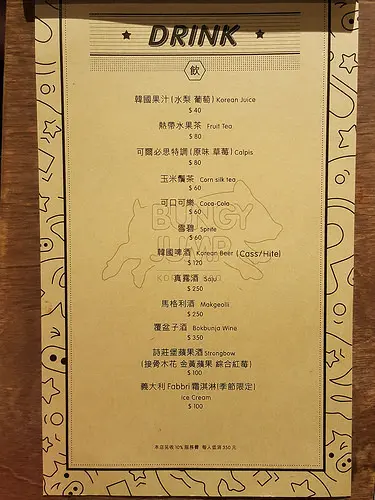 DRINK
飲
韓國果汁(水梨 葡萄) Korean Juice
$ 40
熱帶水果茶 Fruit Tea
$ 80
可爾必思特調(原味 草莓) Calpis
$ 80
玉米鬚茶 Corn silk tea
$ 60
可口可樂 Coca-Cola
$ 60
雪碧 Sprite
$ 60
BUNGY
JUMP
韓國啤酒 Korean Beer (Cass/Hite)
$ 120
真露酒 Soju
$ 250
馬格利酒 Makgeolli
$ 250
覆盆子酒 Bokbunja Wine
$ 350
詩莊堡蘋果酒 Strongbow
(接骨木花 金黃蘋果 綜合紅莓)
$ 100
義大利 Fabbri 霜淇淋(季節限定)
Ice Cream
$ 100
本店另收10%服務費 每人低消350元